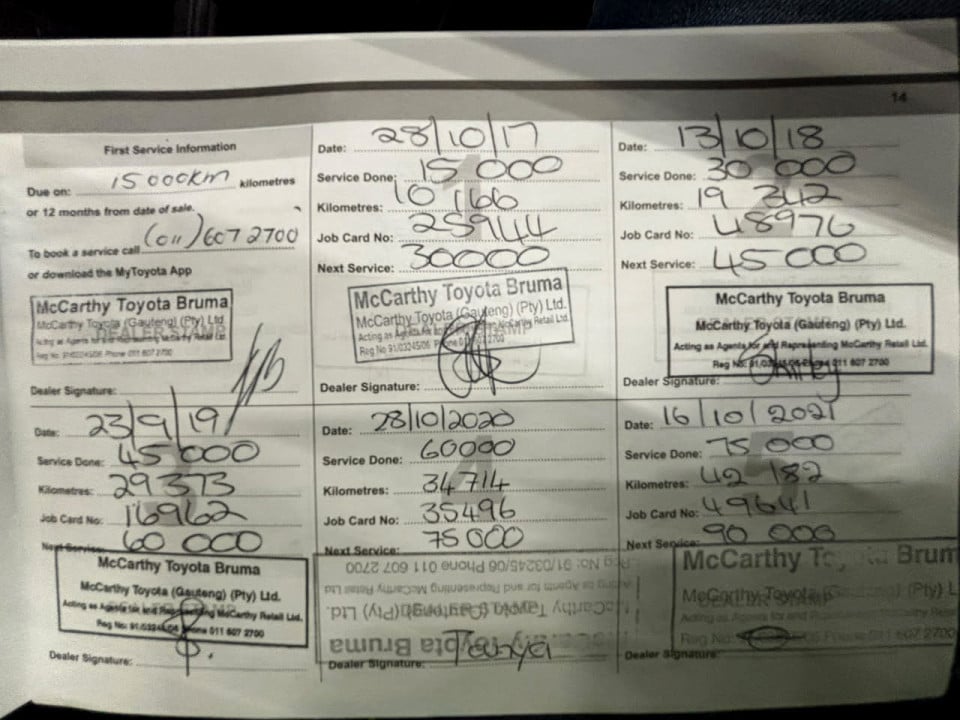 14
First Service Information
Due on: 15 000KM kilometres
or 12 months from date of sale.
To book a service call (011) 607 2700
or download the MyToyota App
McCarthy Toyota Bruma
McCarthy Toyota (Gauteng) (Pty) Ltd.
Acting as Agents for and Representing McCarthy Retail Ltd.
Reg No: 91/03245/06 Phone 011 607 2700
DEALER STAMP
Dealer Signature:
Date: 28/10/17
Service Done: 15 000
Kilometres: 10 166
Job Card No: 25944
Next Service: 30000
McCarthy Toyota Bruma
McCarthy Toyota (Gauteng) (Pty) Ltd.
Acting as Agents for and Representing McCarthy Retail Ltd.
Reg No 91/03245/06 Phone 011 607 2700
Dealer Signature:
Date: 13/10/18
Service Done: 30 000
Kilometres: 19 342
Job Card No: 48976
Next Service: 45 000
McCarthy Toyota Bruma
McCarthy Toyota (Gauteng) (Pty) Ltd.
Acting as Agents for and Representing McCarthy Retail Ltd.
Reg No: 91/03245/06 Phone 011 607 2700
Dealer Signature:
Date: 23/9/19
Service Done: 45 000
Kilometres: 29373
Job Card No: 16962
Next Service: 60 000
McCarthy Toyota Bruma
McCarthy Toyota (Gauteng) (Pty) Ltd.
Acting as Agents for and Representing McCarthy Retail Ltd.
Reg No: 91/03245/06 Phone 011 607 2700
Dealer Signature:
Date: 28/10/2020
Service Done: 60000
Kilometres: 34714
Job Card No: 35496
Next Service: 75000
Reg No: 91/03245/06 Phone 011 607 2700
Acting as Agents for and Representing McCarthy Retail Ltd
McCarthy Toyota (Gauteng) (Pty) Ltd.
McCarthy Toyota Bruma
Dealer Signature:
Date: 16/10/2021
Service Done: 75 000
Kilometres: 42 182
Job Card No: 49641
Next Service: 90 000
McCarthy Toyota Brum
McCarthy Toyota (Gauteng) (Pty) L
DEALER STAMP
Acting as Agents for and Representing McCarthy Reta
Reg No: 06 Phone 011 607 2700
Dealer Signature: